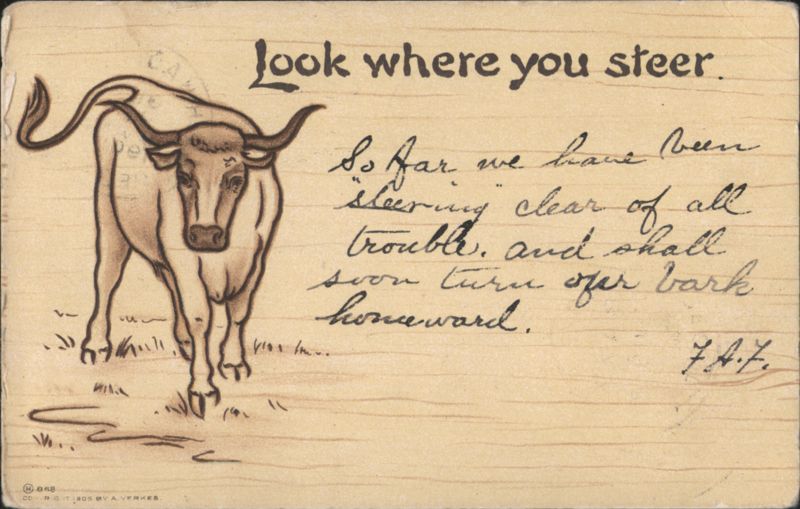 Look where you steer.
So far we have been
"steering" clear of all
trouble. and shall
soon turn our bark
homeward.
F.A.F.
H 868
COPYRIGHT 1905 BY A. YERKES.